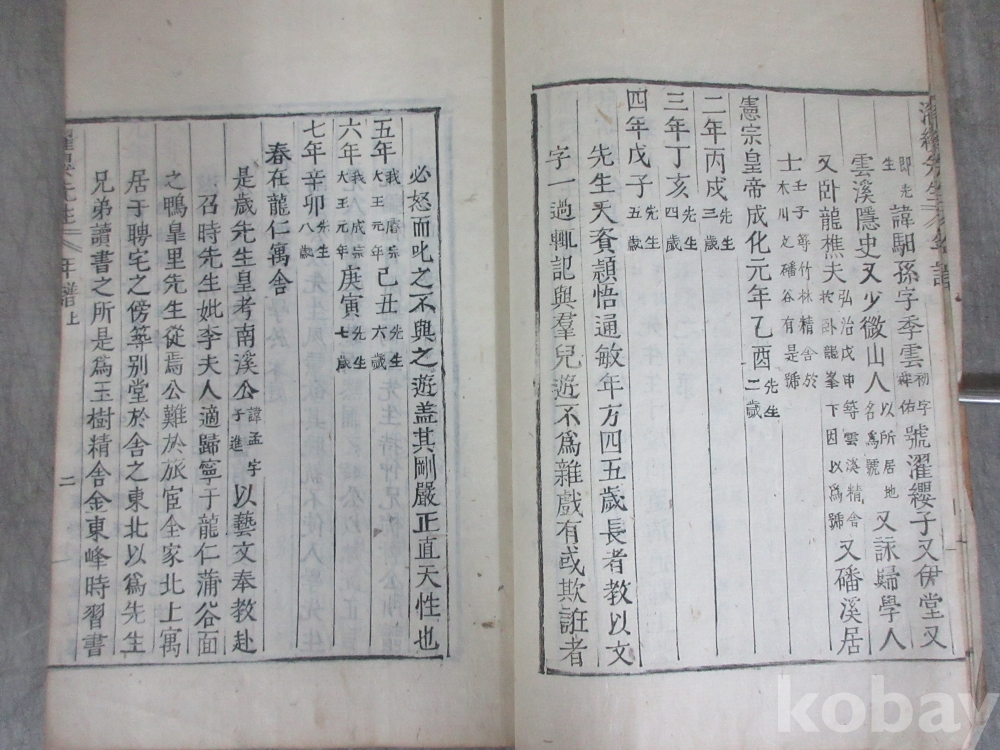 濯纓先生年譜
即先生諱馹孫字季雲初字 號濯纓子又伊堂又
雲溪隱史又少微山人以所居地名爲號又詠歸學人
弘治戊申等雲溪精舍於臥龍峯下因以爲號
又臥龍樵夫 又磻溪居
士壬子等竹林精舍於木川之磻谷有是號
憲宗皇帝成化元年乙酉先生二歲
二年丙戌先生三歲
三年丁亥先生四歲
四年戊子先生五歲
先生天資頴悟通敏年方四五歲長者教以文
字一過輒記與羣兒遊不爲雜戲有或欺誑者
必怒而叱之不與之遊盖其剛嚴正直天性也
五年我睿宗大王元年己丑先生六歲
六年我成宗大王元年庚寅先生七歲
七年辛卯先生八歲
春在龍仁寓舍
是歲先生皇考南溪公諱孟字子進以藝文奉教赴
召時先生妣李夫人適歸寧于龍仁蒲谷面
之鴨臯里先生從焉公難於旅宦全家北上寓
居于聘宅之傍築别堂於舍之東北以爲先生
兄弟讀書之所是爲玉樹精舍金東峰時習書
先生 年譜上 二
kobay